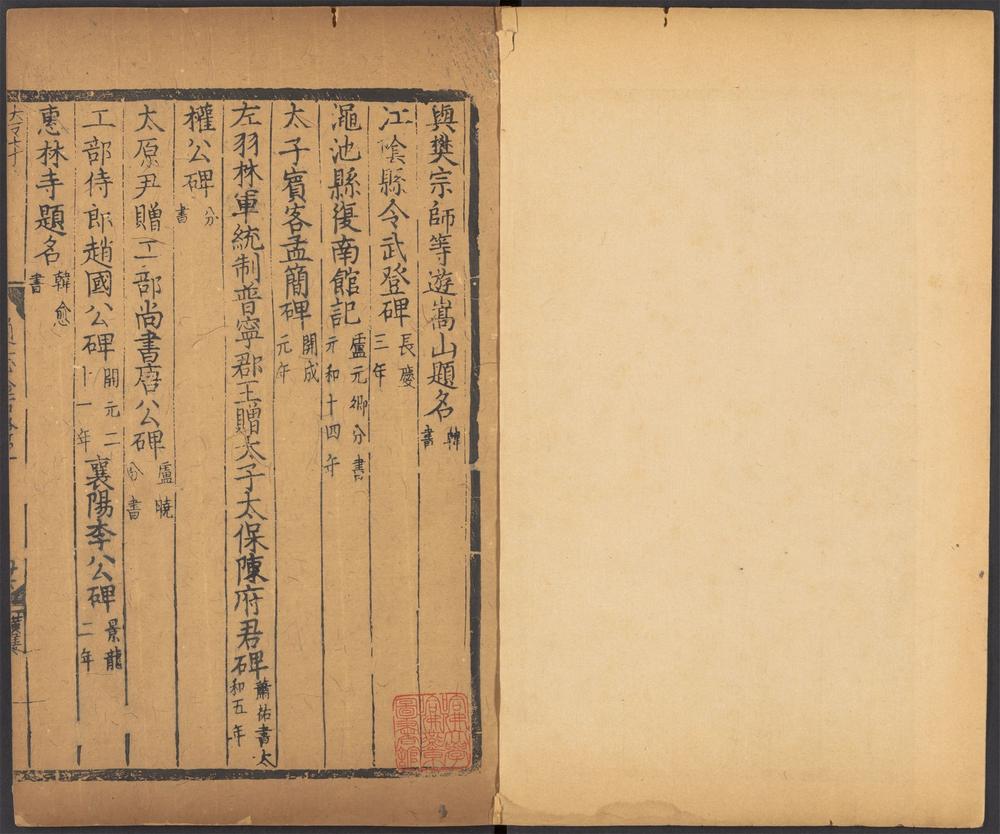 與樊宗師等遊嵩山題名 韓書
江陰縣令武登碑 長慶三年
澠池縣復南館記 盧元卿分書元和十四年
太子賓客孟簡碑 開成元年
左羽林軍統制普寧郡王贈太子太保陳府君碑 蕭祐書太和五年
權公碑 分書
太原尹贈工部尚書唐公碑 盧曉分書
工部待郎趙國公碑 開元二十一年 襄陽李公碑 景龍二年
惠林寺題名 韓愈書